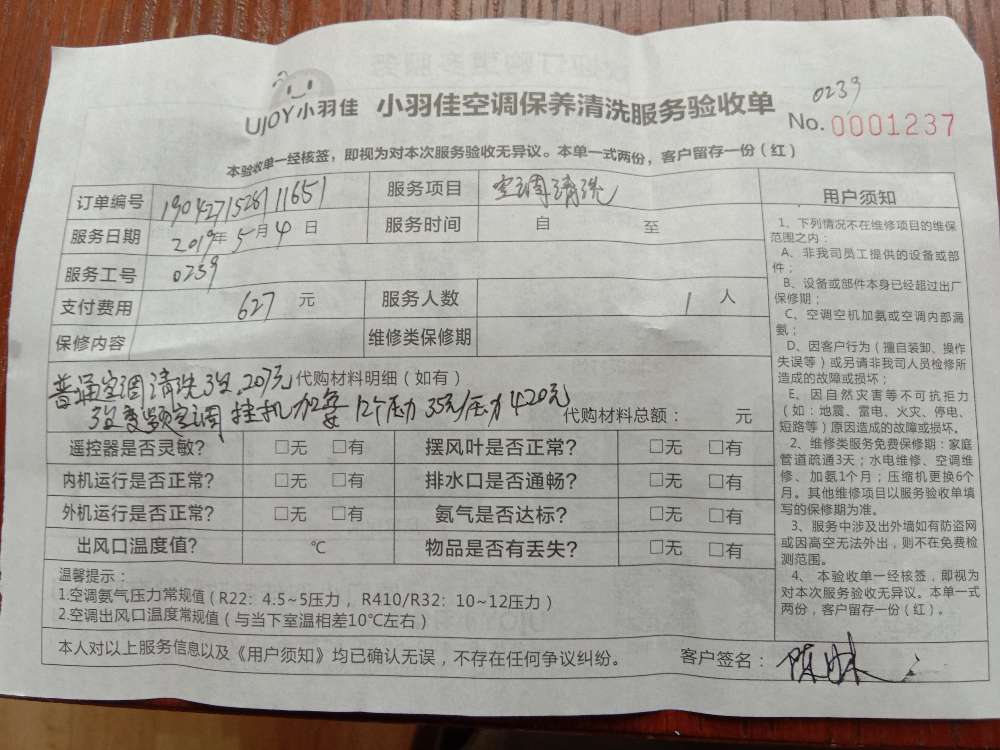 UJOY小羽佳 小羽佳空调保养清洗服务验收单
0239
No. 0001237
本验收单一经核签，即视为对本次服务验收无异议。本单一式两份，客户留存一份（红）
订单编号 服务项目 空调清洗
服务日期 2019年5月4日 服务时间 自 至
服务工号 0239
支付费用 627 元 服务人数 1 人
保修内容 维修类保修期
普通空调清洗3台.207元 代购材料明细（如有）
3台变频空调 挂机 加 12个压力 35元/压力 420元 代购材料总额： 元
遥控器是否灵敏? □无 □有 摆风叶是否正常? □无 □有
内机运行是否正常? □无 □有 排水口是否通畅? □无 □有
外机运行是否正常? □无 □有 氨气是否达标? □无 □有
出风口温度值? ℃ 物品是否有丢失? □无 □有
温馨提示：
1.空调氨气压力常规值（R22：4.5~5压力，R410/R32：10~12压力）
2.空调出风口温度常规值（与当下室温相差10℃左右）
本人对以上服务信息以及《用户须知》均已确认无误，不存在任何争议纠纷。 客户签名：
用户须知
1、下列情况不在维修项目的维保
范围之内：
A、非我司员工提供的设备或部
件；
B、设备或部件本身已经超过出厂
保修期；
C、空调空机加氨或空调内部漏
氨；
D、因客户行为（擅自装卸、操作
失误等）或另请非我司人员检修所
造成的故障或损坏；
E、因自然灾害等不可抗拒力
（如：地震、雷电、火灾、停电、
短路等）原因造成的故障或损坏。
2、维修类服务免费保修期：家庭
管道疏通3天；水电维修、空调维
修、加氨1个月；压缩机更换6个
月。其他维修项目以服务验收单填
写的保修期为准。
3、服务中涉及出外墙如有防盗网
或因高空无法外出，则不在免费检
测范围。
4、本验收单一经核签，即视为
对本次服务验收无异议。本单一式
两份，客户留存一份（红）。